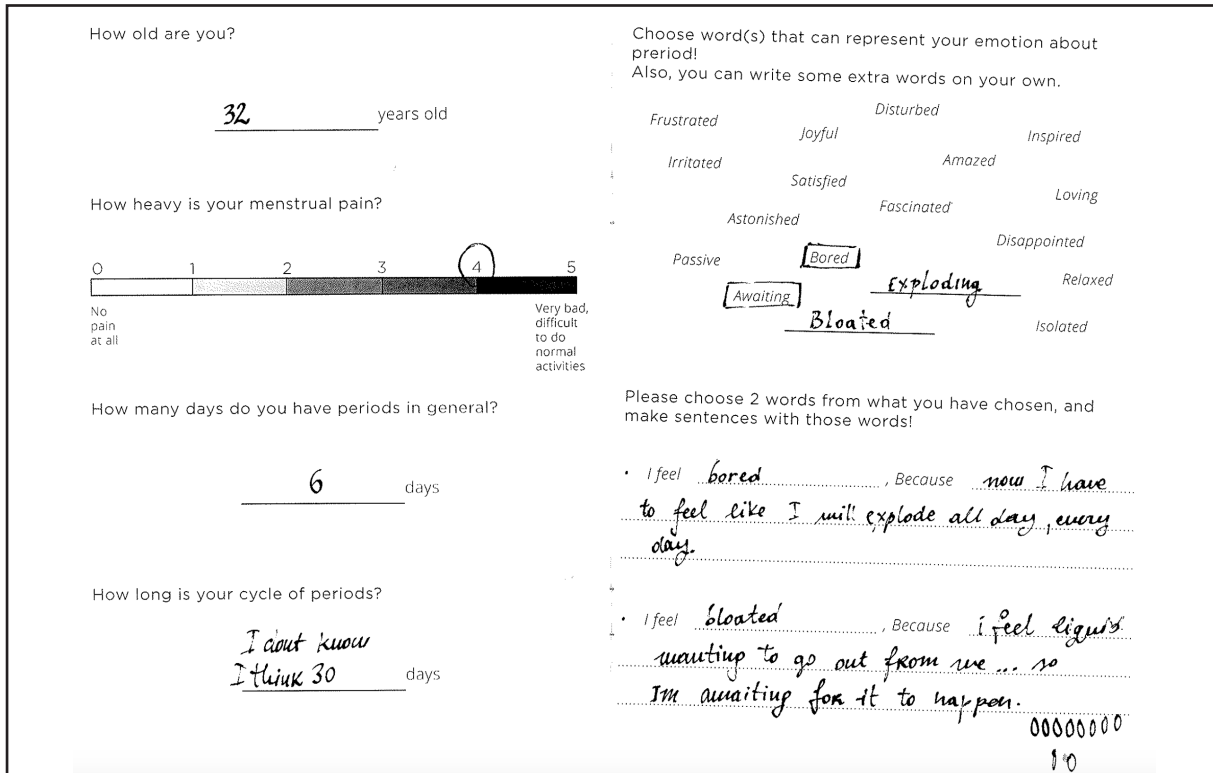 How old are you?
32 years old
How heavy is your menstrual pain?
0 1 2 3 4 5
No
pain
at all
Very bad,
difficult
to do
normal
activities
How many days do you have periods in general?
6 days
How long is your cycle of periods?
I dont know
I think 30 days
Choose word(s) that can represent your emotion about
preriod!
Also, you can write some extra words on your own.
Disturbed
Frustrated
Joyful
Inspired
Irritated
Amazed
Satisfied
Loving
Fascinated
Astonished
Disappointed
Passive
Bored
Relaxed
Exploding
Awaiting
Bloated
Isolated
Please choose 2 words from what you have chosen, and
make sentences with those words!
• I feel bored , Because now I have
to feel like I will explode all day, every
day.
• I feel bloated , Because i feel liquid
wanting to go out from me... so
Im awaiting for it to happen.